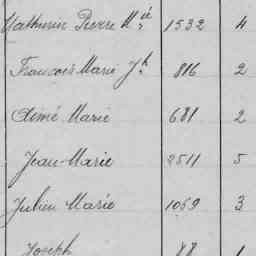 Mathurin Pierre Mie 1532 4
François Marie Jh 816 2
Aimé Marie 681 2
Jean-Marie 2511 5
Julien Marie 1069 3
Joseph 88 1